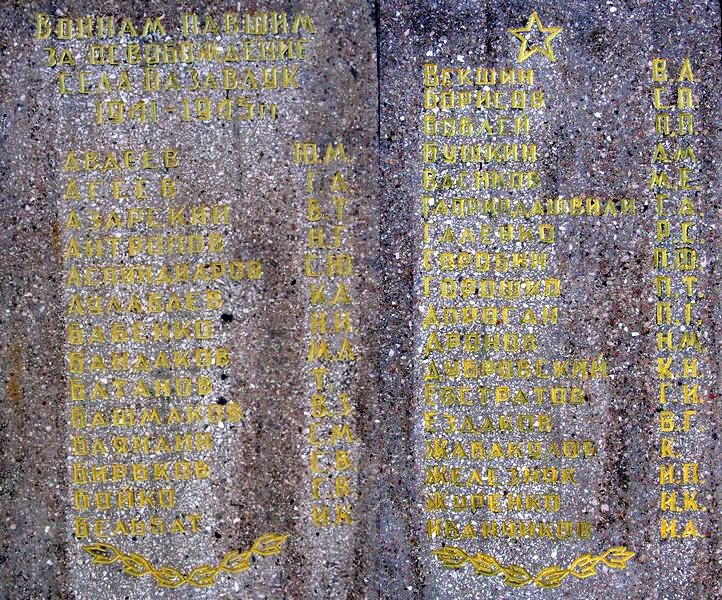 ВОИНАМ ПАВШИМ
ЗА ОСВОБОЖДЕНИЕ
СЕЛА
1941-1945гг
АВДЕЕВ Ю.М.
АГЕЕВ Г.А.
АЗАРСКИЙ В.Т
АНТРОПОВ Н.Г
АСПИНДИЯРОВ С.Ю
АУЛАБАЕВ К.А.
БАБЕНКО Н.И.
БАНДАКОВ М.А
БАТАНОВ Т.
БАШМАКОВ В.З
БАЯНДИН С.М
БИРЬКОВ Г.В
БОЙКО Г.В
БЕЛЬБАТ И.К
ВЕКШИН В.А
БОРИСОВ С.П
П.П.
БУШКИН А.М
ВАСЬКОВ М.Е.
ГАПРИНДАШВИЛИ Г.А.
ГАЛЕНКО Р.С
П.Ш
ГОРОШКО П.Т.
ДОРОГАН П.Г.
ДРОНОВ Н.М
ДУБРОВСКИЙ К.Н
ЕВСТРАТОВ Г.И
ЕЗДАКОВ В.Г.
К.
ЖЕЛЕЗНЮК И.П
ЖУРЕНКО И.К.
ИВАНЧИКОВ И.А